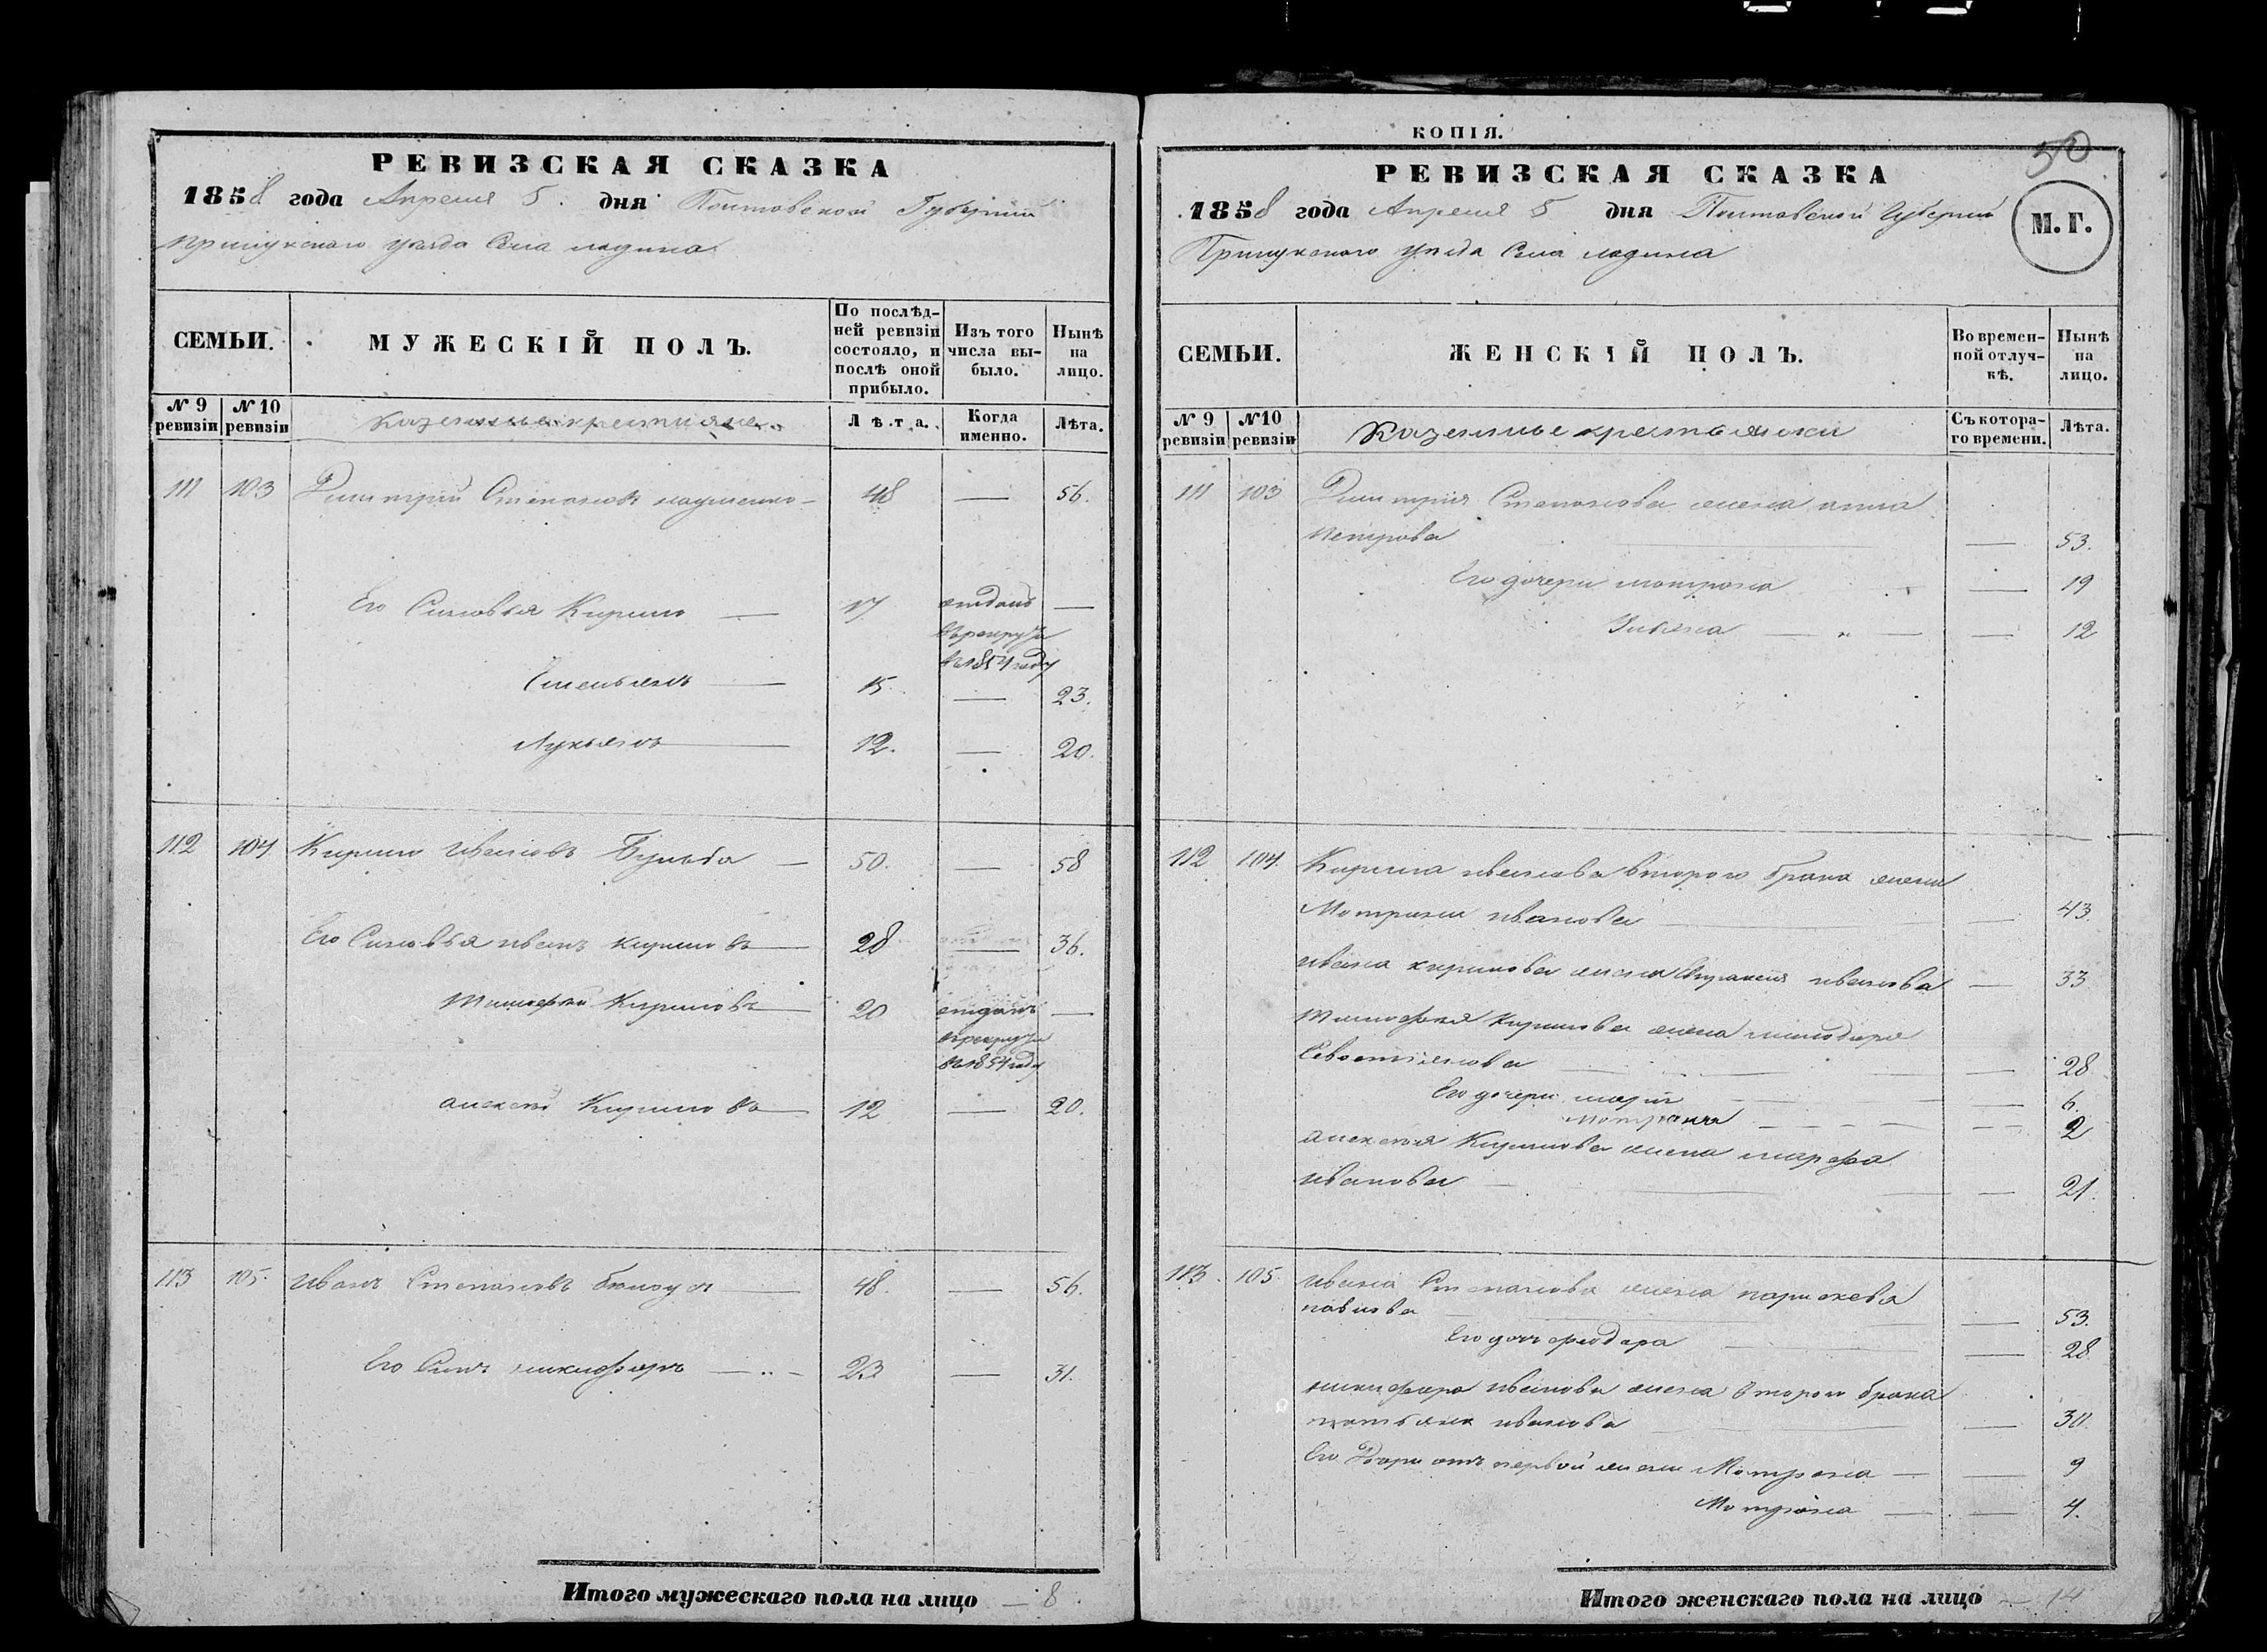 РЕВИЗСКАЯ СКАЗКА
1858 года Апреля 5. дня Полтавской Губернии
Прилукского уезда Села Ладина
СЕМЬИ. МУЖЕСКІЙ ПОЛЪ. По послѣд-ней ревизіи состояло, и послѣ оной прибыло. Изъ того числа вы-было. Нынѣ на лицо.
№ 9 ревизіи № 10 ревизіи Казенные крестьяне. Лѣта. Когда именно. Лѣта.
111 103 Димитрій Степановъ — 48 — 56.
Его Сыновья Кирило — 17 отданъ —
въ рекруты
въ 1854 году
Емельянъ — 15. — 23.
Лукьянъ — 12. — 20.
112 104 Кирило Ивановъ Бульба — 50. — 58
Его Сыновья иванъ Кириловъ — 28 — 36.
тимофей Кириловъ — 20 отданъ —
въ рекруты
въ 1854 году
алексей Кириловъ — 12 — 20.
113 105. иванъ Степановъ — 48. — 56.
Его Сынъ никифоръ — 23 — 31.
Итого мужескаго пола на лицо — 8.
КОПІЯ.
50
РЕВИЗСКАЯ СКАЗКА
1858 года Апреля 5 дня Полтавской Губернии
М. Г.
Прилукского уезда Села Ладина
СЕМЬИ. ЖЕНСКІЙ ПОЛЪ. Во времен-ной отлуч-кѣ. Нынѣ на лицо.
№ 9 ревизіи № 10 ревизіи Казенные крестьянки Съ котора-го времени. Лѣта.
111 103 Димитрія Степанова жена анна
петрова — 53.
Его дочери матрона — 19
Ульяна — 12
112 104. Кирила иванова второго брака жена
Мотрона иванова — 43.
ивана кирилова жена иванова — 33
тимофея Кирилова жена
Севостіянова — 28
Его дочери марія — 6.
мотрона — 2
алексея Кирилова жена марфа
иванова — 21.
113. 105. ивана Степанова жена параскева
павлова — 53.
Его дочь феодора — 28
никифора иванова жена второго брака
татьяна иванова — 30.
Его дочери отъ первой жены Мотрона — 9
Мотрона — 4.
Итого женскаго пола на лицо — 14